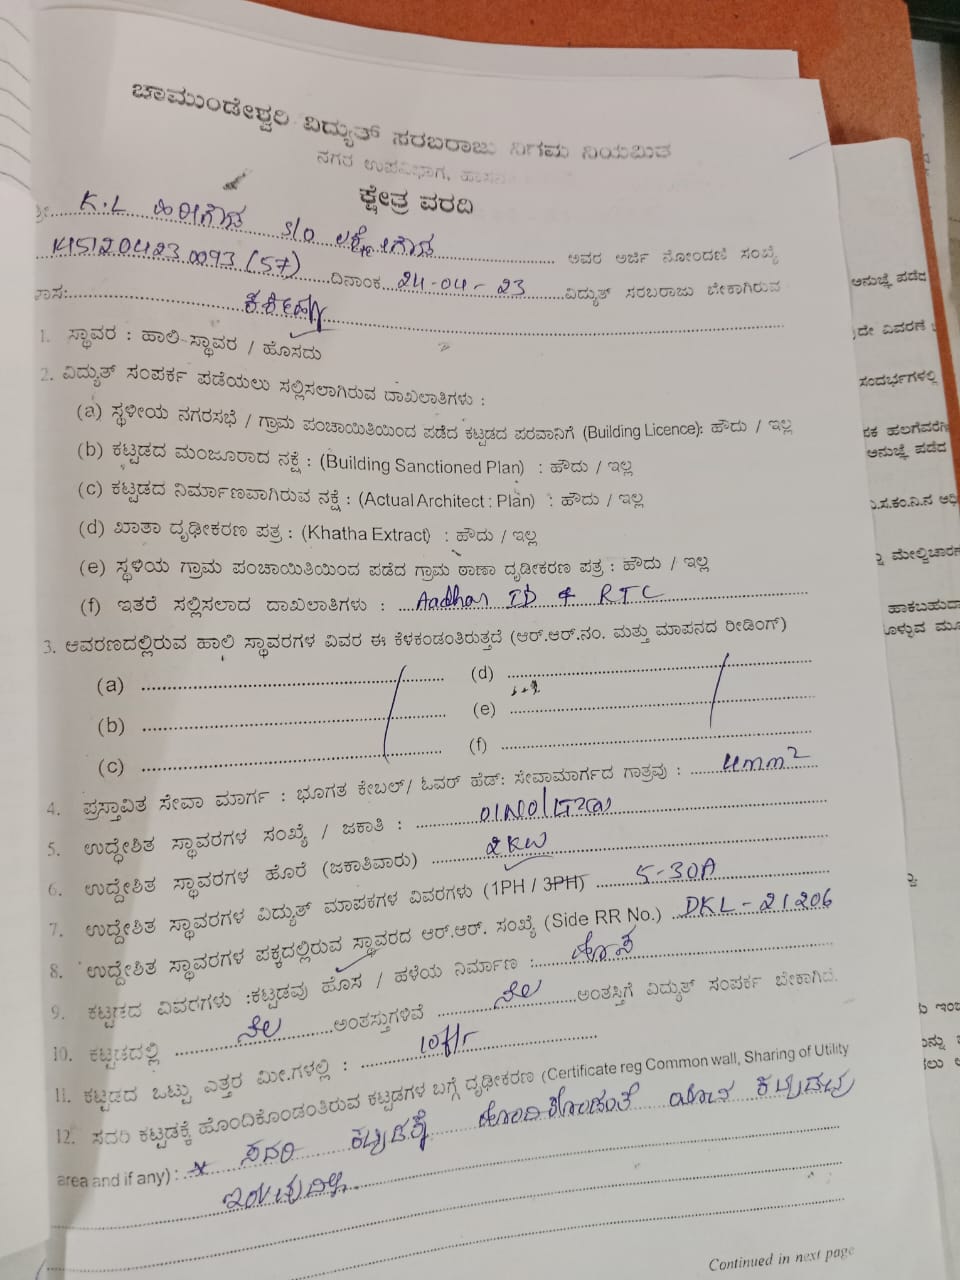 ಚಾಮುಂಡೇಶ್ವರಿ ವಿದ್ಯುತ್ ಸರಬರಾಜು ನಿಗಮ ನಿಯಮಿತ
ನಗರ ಉಪವಿಭಾಗ, ಹಾಸನ
ಕ್ಷೇತ್ರ ವರದಿ
ಶ್ರೀ. K.L ಹಿರಿಗೌಡ S/O ಲಕ್ಕೇಗೌಡ ಅವರ ಅರ್ಜಿ ನೋಂದಣಿ ಸಂಖ್ಯೆ
(57) ದಿನಾಂಕ 24-04-23 ವಿದ್ಯುತ್ ಸರಬರಾಜು ಬೇಕಾಗಿರುವ
1. ಸ್ಥಾವರ : ಹಾಲಿ-ಸ್ಥಾವರ / ಹೊಸದು
2. ವಿದ್ಯುತ್ ಸಂಪರ್ಕ ಪಡೆಯಲು ಸಲ್ಲಿಸಲಾಗಿರುವ ದಾಖಲಾತಿಗಳು :
(a) ಸ್ಥಳೀಯ ನಗರಸಭೆ / ಗ್ರಾಮ ಪಂಚಾಯಿತಿಯಿಂದ ಪಡೆದ ಕಟ್ಟಡದ ಪರವಾನಿಗೆ (Building Licence): ಹೌದು / ಇಲ್ಲ
(b) ಕಟ್ಟಡದ ಮಂಜೂರಾದ ನಕ್ಷೆ : (Building Sanctioned Plan) : ಹೌದು / ಇಲ್ಲ
(c) ಕಟ್ಟಡದ ನಿರ್ಮಾಣವಾಗಿರುವ ನಕ್ಷೆ : (Actual Architect : Plan) : ಹೌದು / ಇಲ್ಲ
(d) ಖಾತಾ ದೃಢೀಕರಣ ಪತ್ರ : (Khatha Extract) : ಹೌದು / ಇಲ್ಲ
(e) ಸ್ಥಳಿಯ ಗ್ರಾಮ ಪಂಚಾಯಿತಿಯಿಂದ ಪಡೆದ ಗ್ರಾಮ ಠಾಣಾ ದೃಡೀಕರಣ ಪತ್ರ : ಹೌದು / ಇಲ್ಲ
(f) ಇತರೆ ಸಲ್ಲಿಸಲಾದ ದಾಖಲಾತಿಗಳು : Aadhar ID & RTC
3. ಆವರಣದಲ್ಲಿರುವ ಹಾಲಿ ಸ್ಥಾವರಗಳ ವಿವರ ಈ ಕೆಳಕಂಡಂತಿರುತ್ತದೆ (ಆರ್.ಆರ್.ನಂ. ಮತ್ತು ಮಾಪನದ ರೀಡಿಂಗ್)
(a) (d)
(b) (e)
(c) (f)
4. ಪ್ರಸ್ತಾವಿತ ಸೇವಾ ಮಾರ್ಗ : ಭೂಗತ ಕೇಬಲ್/ ಓವರ್ ಹೆಡ್: ಸೇವಾಮಾರ್ಗದ ಗಾತ್ರವು : 4mm2
5. ಉದ್ಧೇಶಿತ ಸ್ಥಾವರಗಳ ಸಂಖ್ಯೆ / ಜಕಾತಿ : 01NO/LT2(a)
6. ಉದ್ದೇಶಿತ ಸ್ಥಾವರಗಳ ಹೊರೆ (ಜಕಾತಿವಾರು) 2KW
7. ಉದ್ದೇಶಿತ ಸ್ಥಾವರಗಳ ವಿದ್ಯುತ್ ಮಾಪಕಗಳ ವಿವರಗಳು (1PH / 3PH) 5-30A
8. ಉದ್ದೇಶಿತ ಸ್ಥಾವರಗಳ ಪಕ್ಕದಲ್ಲಿರುವ ಸ್ಥಾವರದ ಆರ್.ಆರ್. ಸಂಖ್ಯೆ (Side RR No.) DKL-21206
9. ಕಟ್ಟಡದ ವಿವರಗಳು :ಕಟ್ಟಡವು ಹೊಸ / ಹಳೆಯ ನಿರ್ಮಾಣ : ಹೊಸ
10. ಕಟ್ಟಡದಲ್ಲಿ ನೆಲ ಅಂತಸ್ತುಗಳಿವೆ ನೆಲ ಅಂತಸ್ತಿಗೆ ವಿದ್ಯುತ್ ಸಂಪರ್ಕ ಬೇಕಾಗಿದೆ.
11. ಕಟ್ಟಡದ ಒಟ್ಟು ಎತ್ತರ ಮೀ.ಗಳಲ್ಲಿ :
12. ಸದರಿ ಕಟ್ಟಡಕ್ಕೆ ಹೊಂದಿಕೊಂಡಂತಿರುವ ಕಟ್ಟಡಗಳ ಬಗ್ಗೆ ದೃಢೀಕರಣ (Certificate reg Common wall, Sharing of Utility
area and if any) : ಸದರಿ ಕಟ್ಟಡಕ್ಕೆ ಹೊಂದಿಕೊಂಡಂತೆ ಯಾವ ಕಟ್ಟಡವು
ಇರುವುದಿಲ್ಲ.
Continued in next page